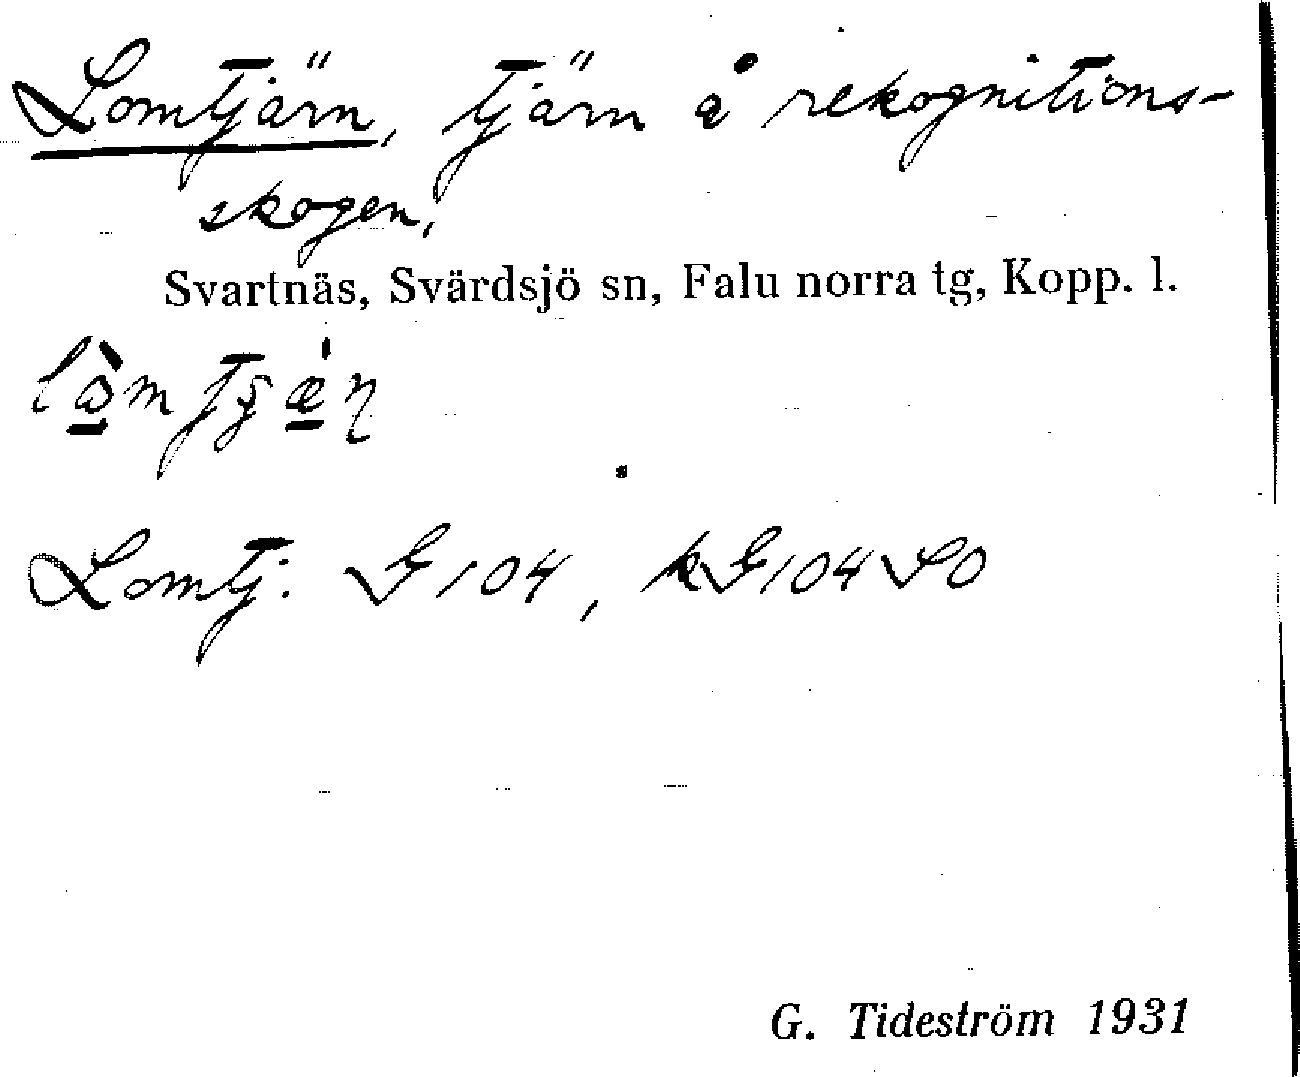 Lomtjärn, tjärn å rekognitions-
skogen,
Svartnäs, Svärdsjö sn, Falu norra tg, Kopp. l.
Lomtj. G 104, kG104SO
G. Tideström 1931